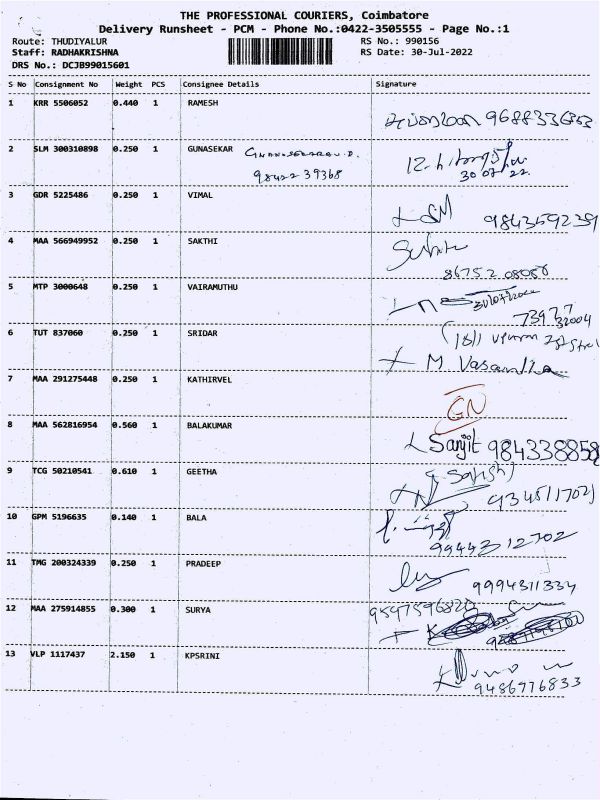 THE PROFESSIONAL COURIERS, Coimbatore
Delivery Runsheet - PCM - Phone No.:0422-3505555 - Page No.:1
Route: THUDIYALUR RS No.: 990156
Staff: RADHAKRISHNA RS Date: 30-Jul-2022
DRS No.: DCJB99015601
S No Consignment No Weight PCS Consignee Details Signature
1 KRR 5506052 0.440 1 RAMESH
2 SLM 300310898 0.250 1 GUNASEKAR
98422 39368 30 07 22
3 GDR 5225486 0.250 1 VIMAL
9843592391
4 MAA 566949952 0.250 1 SAKTHI
86752 08080
5 MTP 3000648 0.250 1 VAIRAMUTHU
73977
32004
6 TUT 837060 0.250 1 SRIDAR
M. Vasantha
7 MAA 291275448 0.250 1 KATHIRVEL
GN
8 MAA 562816954 0.560 1 BALAKUMAR
Sanjit 9843388589
9 TCG 50210541 0.610 1 GEETHA
(Satish)
10 GPM 5196635 0.140 1 BALA
99443 12702
11 TMG 200324339 0.250 1 PRADEEP
9994311334
12 MAA 275914855 0.300 1 SURYA
9597596820
13 VLP 1117437 2.150 1 KPSRINI
9486776833